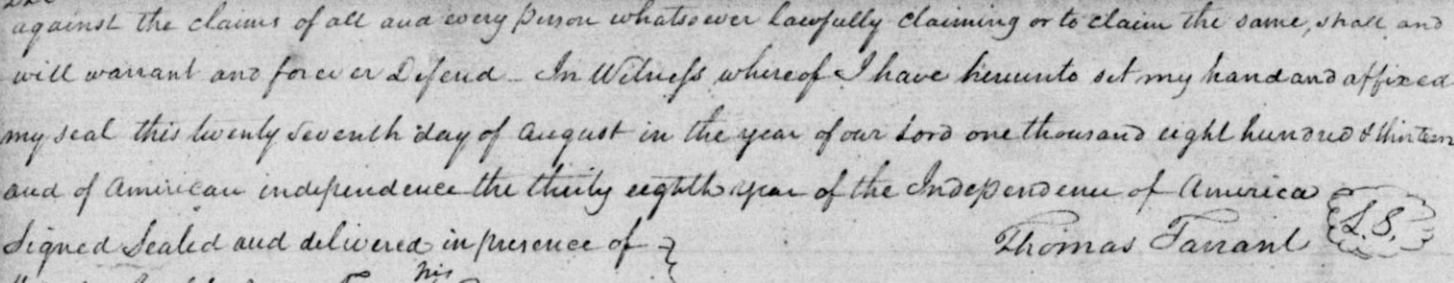 against the claims of all and every person whatsoever lawfully claiming or to claim the same, shall and
will warrant and forever Defend - In Witness whereof I have hereunto set my hand and affixed
my seal this twenty Seventh day of August in the year of our Lord one thousand eight hundred & thirteen
and of American independence the thirty eighth year of the Independence of America
Signed Sealed and delivered in presence of }
Thomas Tarrant L.S.
his